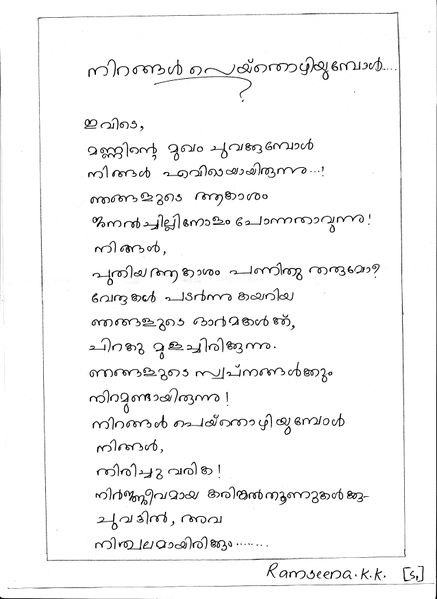 നിറങ്ങൾ പെയ്തൊഴിയുമ്പോൾ....
?
ഇവിടെ,
മണ്ണിന്റെ മുഖം ചുവക്കുമ്പോൾ
നിങ്ങൾ എവിടെയായിരുന്നു...!
ഞങ്ങളുടെ ആകാശം
ജനൽച്ചില്ലിനോളം പോന്നതാവുന്നു!
നിങ്ങൾ,
പുതിയ ആകാശം പണിതു തരുമോ?
വേരുകൾ പടർന്നു കയറിയ
ഞങ്ങളുടെ ഓർമകൾക്ക്,
ചിറകു മുളച്ചിരിക്കുന്നു.
ഞങ്ങളുടെ സ്വപ്നങ്ങൾക്കും
നിറമുണ്ടായിരുന്നു!
നിറങ്ങൾ പെയ്തൊഴിയുമ്പോൾ
നിങ്ങൾ,
തിരിച്ചു വരിക!
നിർജ്ജീവമായ കരിങ്കൽതൂണുകൾക്കു-
ചുവടിൽ, അവ
നിശ്ചലമായിരിക്കും........
Ramseena.K.K. [S1]